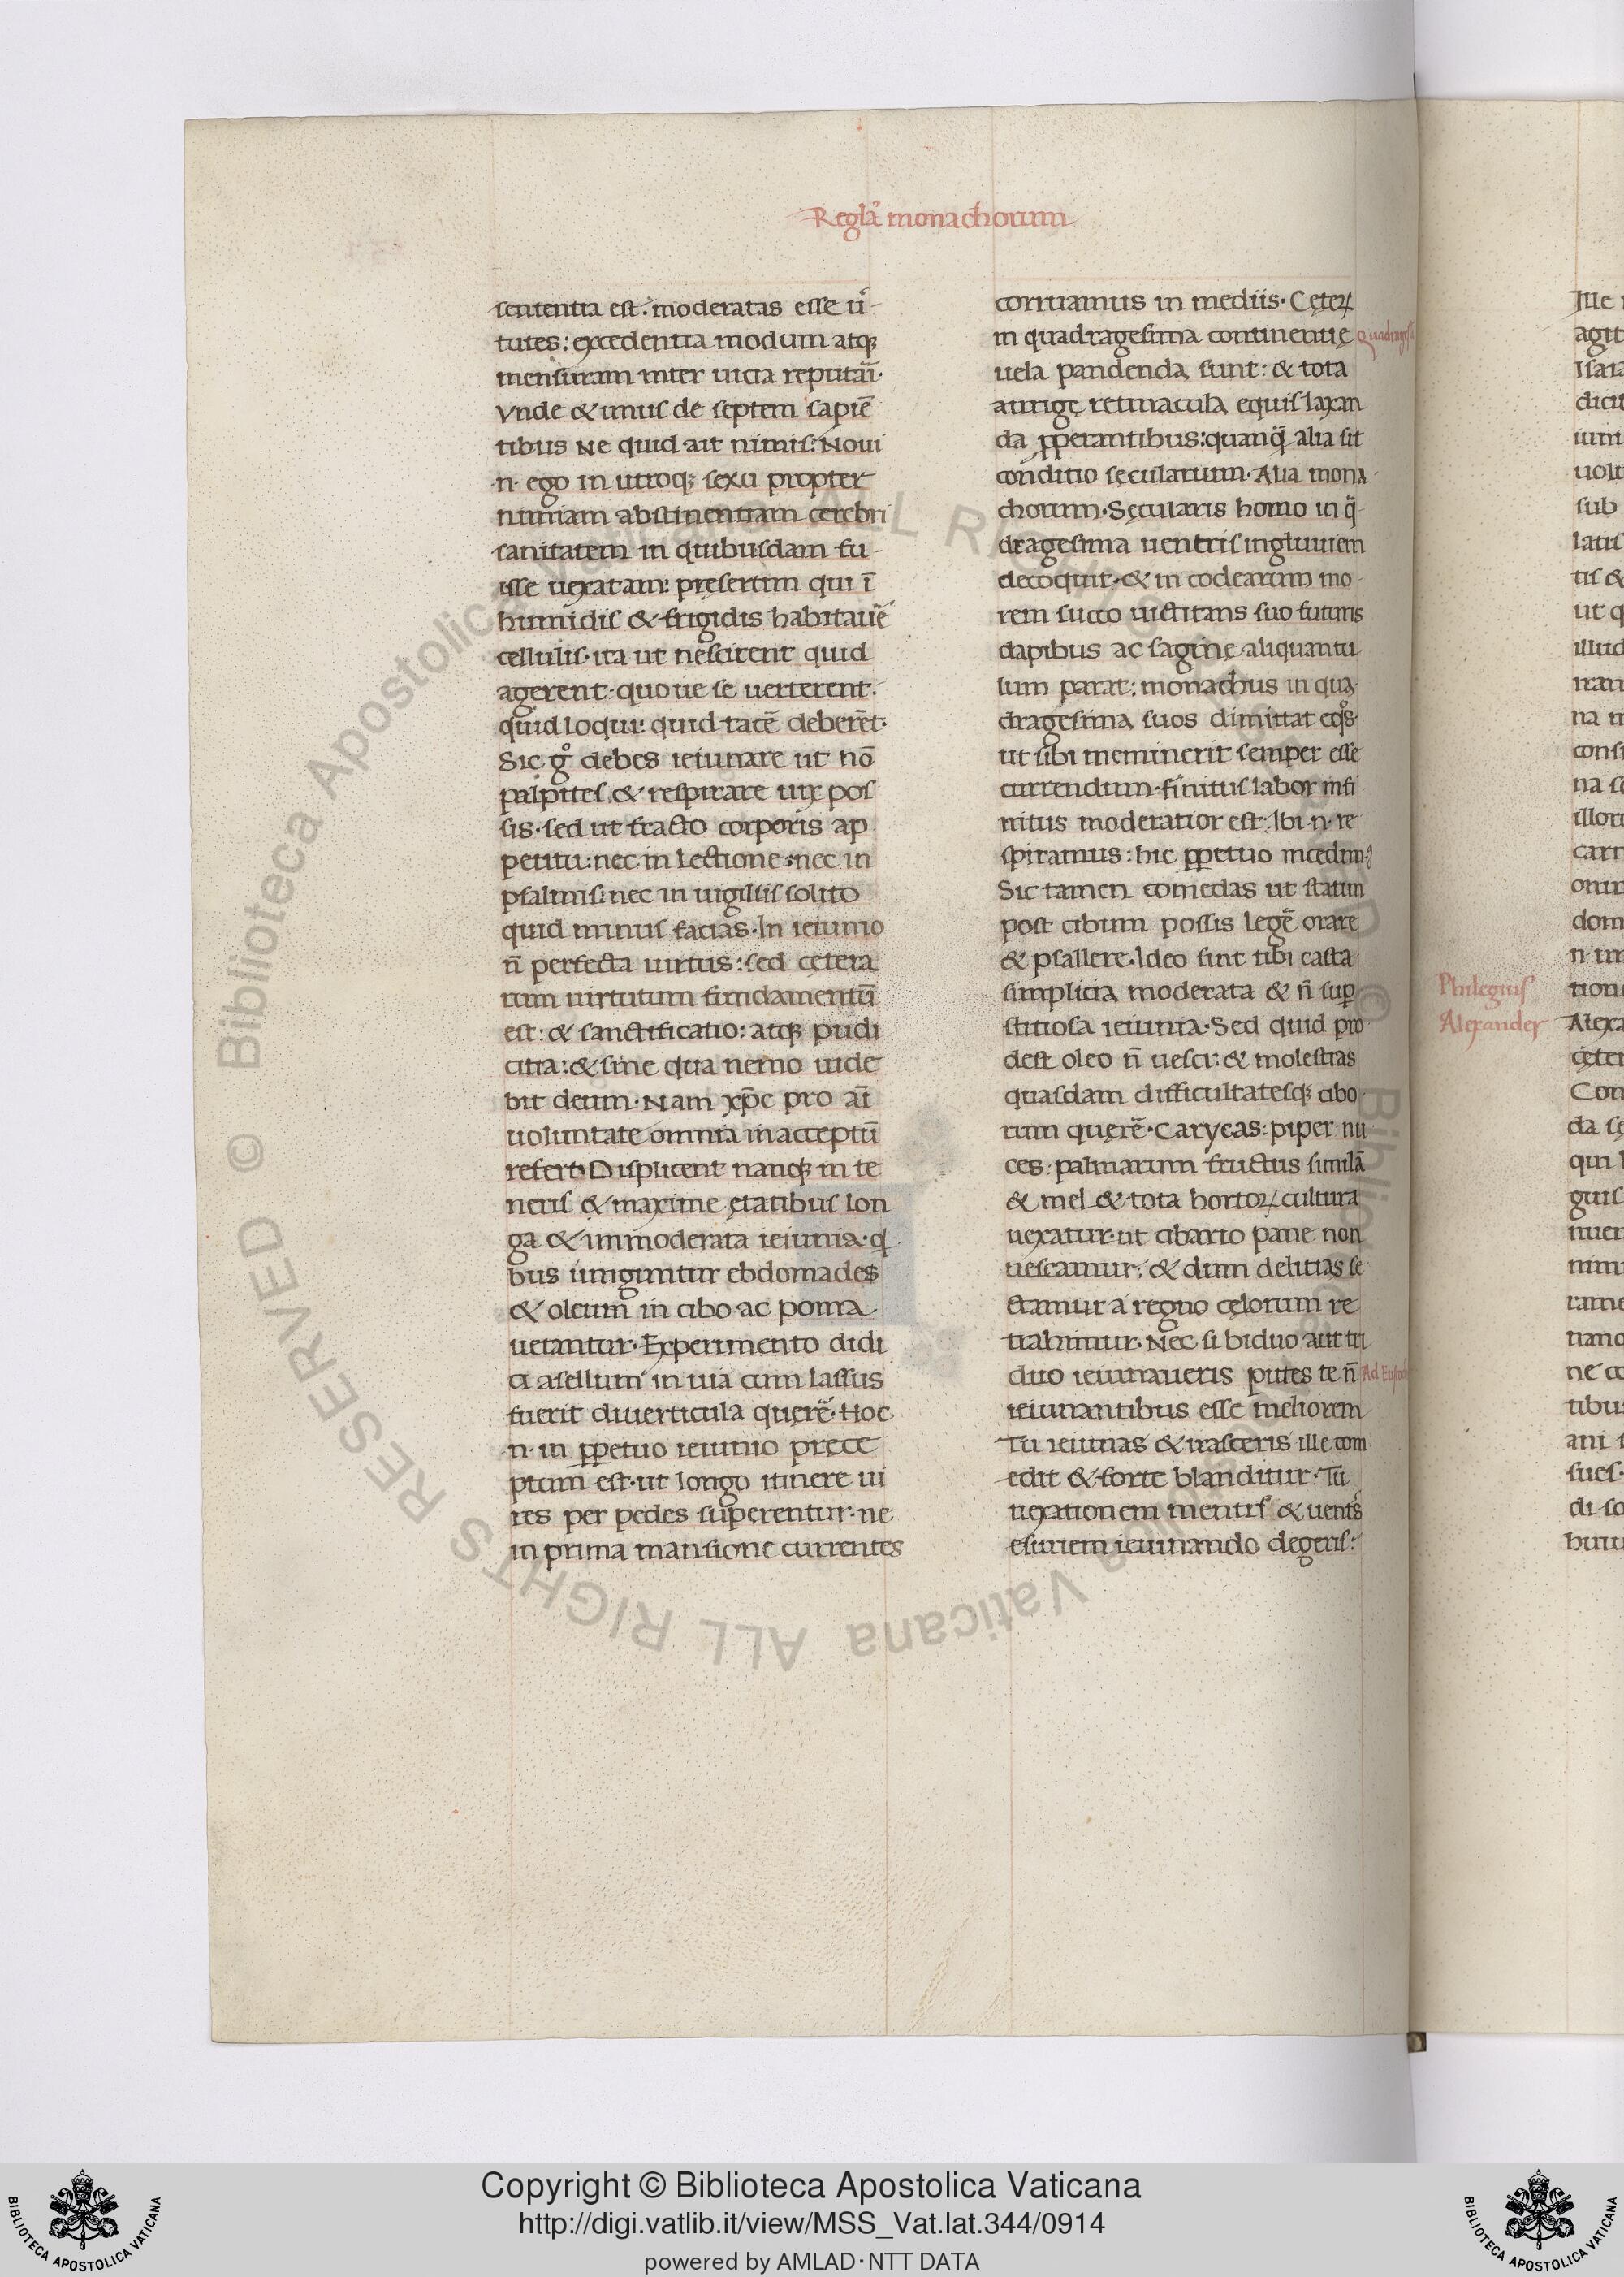 Regla᷒ monachorum
sententia est: moderatas esse uͥr-
tutes: excedentia modum atq;
mensuram inter uicia reputāī.
vnde & unus de septem sapiē
tibus Ne quid ait nimis: Noui
.n. ego in utroq; sexu propter
nimiam abstinentiam cerebri
sanitatem in quibusdam fu-
isse uexatam: presertim qui ī
humidis & frigidis habitauē
cellulis. ita ut nescirent quid
agerent. quo ue se uerterent.
quid loqui: quid tacē deberēt.
Sic gͦ debes ieiunare ut nō
palpites & respirare uix pos
sis. sed ut fracto corporis ap
petitu: nec in Lectione: nec in
psalmis: nec in uigiliis solito
quid minus facias. In ieiunio
n̄ perfecta uirtus: sed cetera
rum uirtutum fundamentū
est: & sanctificatio: atq; pudi
citia: & sine qua nemo uide
bit deum. Nam xp̄c pro aī
uoluntate omnia in acceptū
refert. Displicent nanq; in te
neris & maxime ętatibus lon
ga & immoderata ieiunia. qͥ
bus iunguntur ebdomades
& oleum in cibo ac poma
uetantur. Experimento didi
ci asellum in uia cum lassus
fuerit diuerticula querē. Hoc
.n. in ꝑpetuo ieiunio prece
ptum est. ut longo itinere ui
res per pedes superentur. ne
in prima mansione currentes
corruamus in mediis. Ceteꝝ
in quadragesima continentię
uela pandenda sunt: & tota
aurige retinacula equis laxan
da ꝓperantibus: quanq̄ alia sit
conditio secularium. Alia mona
chorum. Sęcularis homo in q̄
dragesima uentris ingluuiem
decoquit. & in coclearum mo-
rem succo uictitans suo futuris
dapibus ac sagine aliquantu
lum parat: monachus in qua
dragesima suos dimittat eq̊s.
ut sibi meminerit semper esse
currendum. finitus labor infi
nitus moderatior est. Ibi .n. re
spiramus: hic ꝑpetuo incedim9
Sic tamen comedas ut statim
post cibum possis legē orare
& psallere. Ideo sint tibi casta
simplicia moderata & n̄ suꝑ
stitiosa ieiunia. Sed quid pro
dest oleo n̄ uesci: & molestias
quasdam difficultatesq; cibo
rum querē. Carycas: piper nu
ces: palmarum fructus similā
& mel & tota hortoꝝ cultura
uexatur. ut cibario pane non
uescamur: & dum delitias se
ctamur a regno cęlorum re
trahimur. Nec si biduo aut tri
duo ieiunaueris putes te n̄
ieiunantibus esse meliorem
Tu ieiunas & irasceris ille com
edit & forte blanditur. Tu
uexationem mentis & uentͥs
esuriem ieiunando degeris:
Philegius
Alexander
Copyright © Biblioteca Apostolica Vaticana
http://digi.vatlib.it/view/MSS_Vat.lat.344/0914
powered by AMLAD·NTT DATA
© Biblioteca Apostolica Vaticana ALL RIGHTS RESERVED
BIBLIOTECA APOSTOLICA VATICANA
BIBLIOTECA APOSTOLICA VATICANA